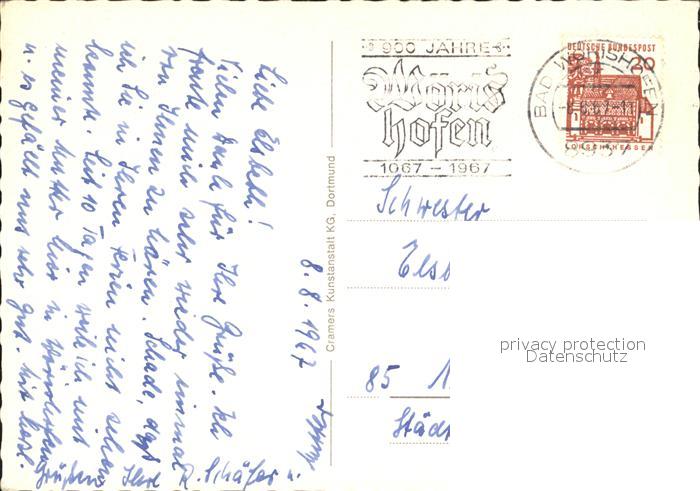 Liebe Elsbeth!
Vielen Dank für Ihre Grüße. Ich
freute mich sehr wieder einmal
von Ihnen zu hören. Schade, daß
ich Sie in Ihren Ferien nicht sehen
konnte. Seit 10 Tagen weile ich mit
meiner Mutter hier in Wörishofen
u. es gefällt uns sehr gut. Mit herzl.
Grüßen Ihre R. Schäfer u.
Mutter
8. 8. 1967
Cramers Kunstanstalt KG, Dortmund
900 JAHRE
Wöris
hofen
1067 - 1967
BAD WÖRISHOFEN
8939
DEUTSCHE BUNDESPOST
20
LORSCH/HESSEN
Schwester
Else
85
Städ
privacy protection
Datenschutz